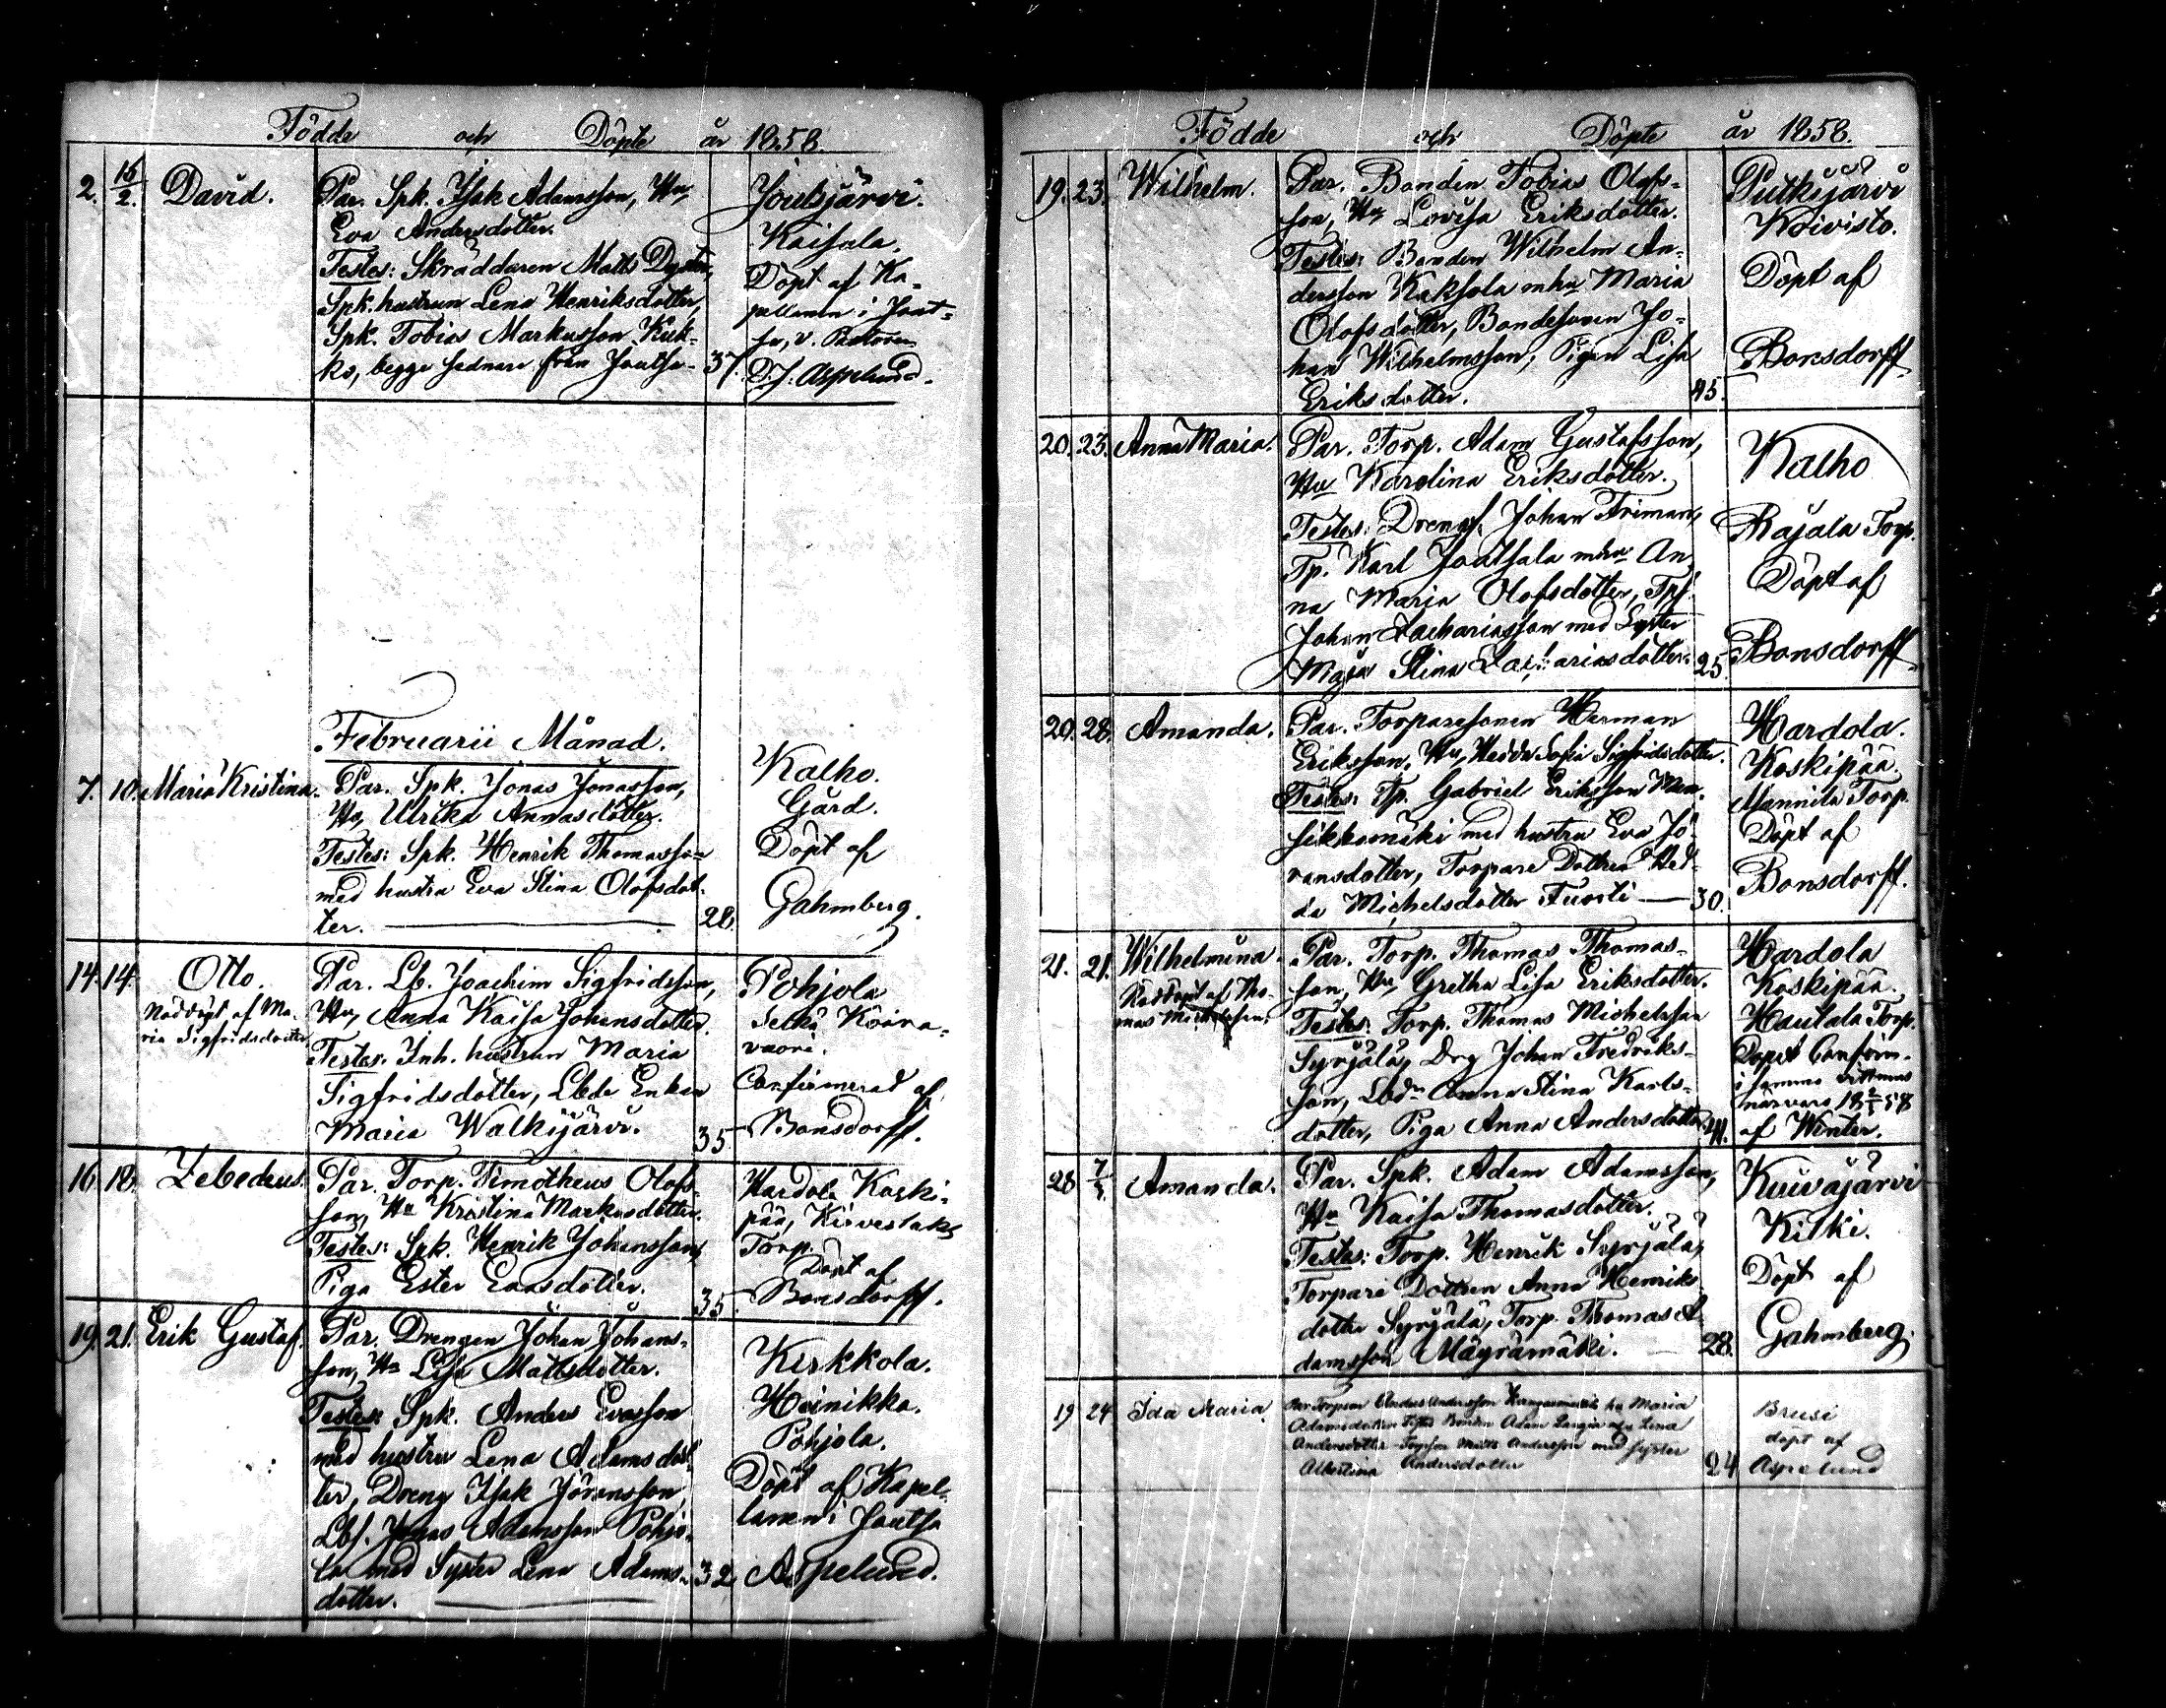 Födde och Döpte år 1858.
2. 16/2. David. Par. Spk. Isak Adamsson, Hu,
Eva Andersdotter.
Testes: Skräddaren Matts Dyster,
Spk. hustrun Lena Henriksdotter,
Spk. Tobias Markusson Kuk-
ko, begge sednare från Joutsa- 37.
Joutsjärvi.
Kaisala.
Döpt af Ka-
pellanen i Jout-
sa, v. Pastoren
Aspelund.
Februarii Månad.
7. 10. Maria Kristina. Par. Spk. Jonas Jonasson,
Hu, Ulrika Annasdotter.
Testes: Spk. Henrik Thomasson
med hustru Eva Stina Olofsdot-
ter. 28.
Kalho.
Gård.
Döpt af
Gahmberg.
14. 14. Otto.
Nöddöpt af Ma-
ria Sigfridsdotter
Par. Lb. Joachim Sigfridsson,
Hu, Anna Kaisa Johansdotter.
Testes: Inh. hustrun Maria
Sigfridsdotter, Enkan
Maria Walkijärvi. 35
Pohjola
Selkä Koira-
vuori.
Confirmerad af
Bonsdorff.
16. 18. Zebedeus. Par. Torp. Timotheus Olofs-
son, Hu Kristina Markusdotter.
Testes: Spk. Henrik Johansson,
Piga Ester Evasdotter. 35.
Hardola Koski-
pää,
Torp.
Döpt af
Bonsdorff.
19. 21. Erik Gustaf. Par. Drengen Johan Johans-
son, Hu Lisa Mattsdotter.
Testes: Spk. Anders Evasson
med hustru Lena Adamsdot-
ter, Dreng Isak Göransson,
Lbs. Jonas Adamsson Pohjo-
la med Syster Lena Adams- 32
dotter.
Kirkkola.
Heinikko.
Pohjola.
Döpt af Kapel-
lanen i Joutsa
Aspelund.
Födde och Döpte år 1858.
19. 23. Wilhelm. Par. Bonden Tobias Olofs-
son, Hu Lovisa Eriksdotter.
Testes: Bonden Wilhelm An-
dersson Kaksola mhu Maria
Olofsdotter, Bondesonen Jo-
han Wilhelmsson, Pigan Lisa
Eriksdotter. 45.
Putkijärvi
Koivisto.
Döpt af
Bonsdorff.
20. 23. Anna Maria. Par. Torp. Adam Gustafsson,
Hu Karolina Eriksdotter.
Testes: Dreng. Johan Friman,
Tp. Karl Joutsala mhu An-
na Maria Olofsdotter, Tps.
Johan Zachariasson med Syster
Maja Stina Zachariasdotter. 25.
Kalho
Rajala Torp.
Döpt af
Bonsdorff.
20. 28. Amanda. Par. Torparesonen Herman
Eriksson, Hu, Hedda Sofia Sigfridsdotter.
Testes: Tp. Gabriel Eriksson Man-
sikkamäki med hustru Eva Jö-
ransdotter, Torpare Dottren Hed-
da Michelsdotter Tuorti 30.
Hardola.
Koskipää.
Mannila Torp.
Döpt af
Bonsdorff.
21. 21. Wilhelmina.
Nöddöpt af Tho-
mas Michelsson.
Par. Torp. Thomas Thomas-
son, Hu, Gretha Lisa Eriksdotter.
Testes: Torp. Thomas Michelsson
Syrjälä, Drg Johan Fredriks-
son, Anna Stina Karls-
dotter, Piga Anna Andersdotter. 41.
Hardola
Koskipää.
Hautala Torp.
Dopet Confirm.
i samma vittnens
närvaro
af Winter.
28 7/3 Amanda. Par. Spk. Adam Adamsson,
Hu Kaisa Thomasdotter.
Testes: Torp. Henrik Syrjälä,
Torpare Dottren Anna Henriks-
dotter Syrjälä, Torp. Thomas A-
damsson Mäyrämäki. 28.
Kuivajärvi
Kilki.
Döpt af
Gahmberg.
19 24 Ida Maria. Par Torparn Anders Andersson Kangasmäki hu Maria
Adamsdotter Testes Bonden Adam Lena
Andersdotter Torpson Matts Andersson med syster
Albertina Andersdotter 24
Brusi
döpt af
Aspelund